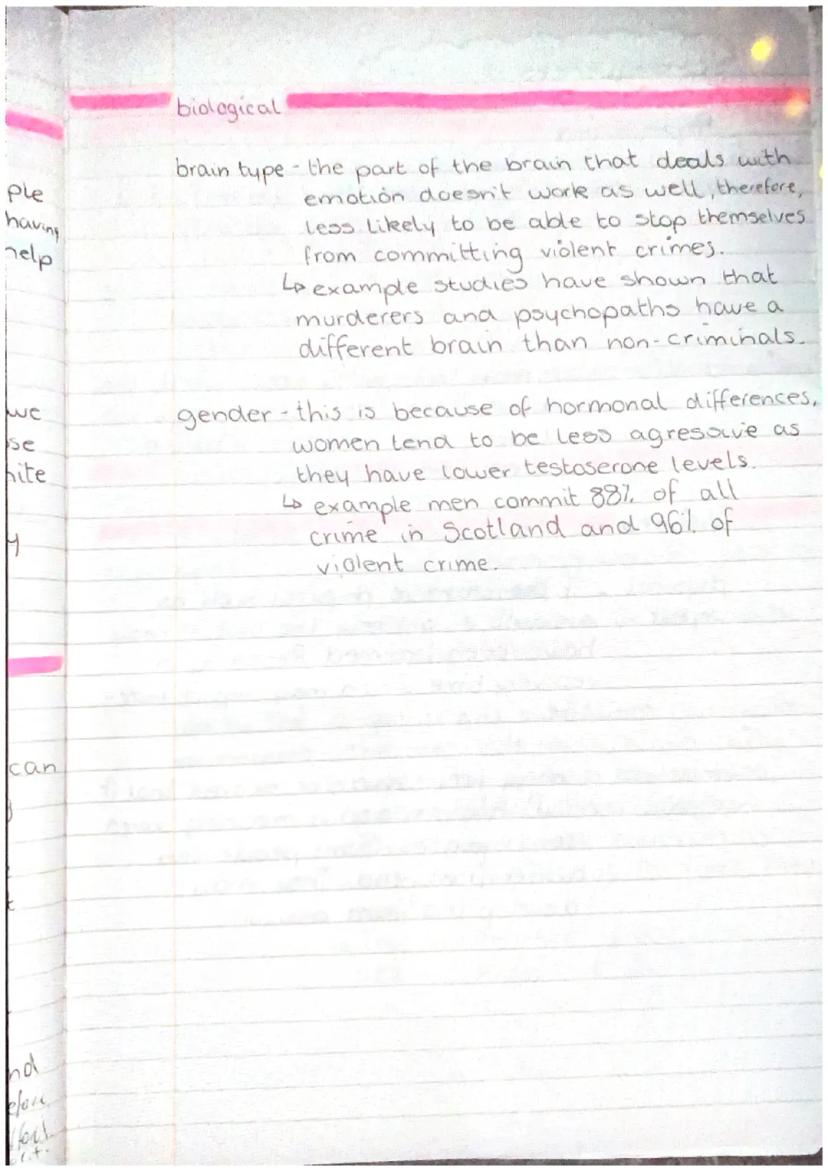 biological
brain type - the part of the brain that deals with
emotion doesn't work as well, therefore,
less likely to be able to stop themselves
from committing violent crimes.
↳ example studies have shown that
murderers and psychopaths have a
different brain than non-criminals.
gender - this is because of hormonal differences,
women tend to be less agressive as
they have lower testoserone levels.
↳ example men commit 88% of all
crime in Scotland and 96% of
violent crime.
ple
having
help
we
se
hite
y
can
nd